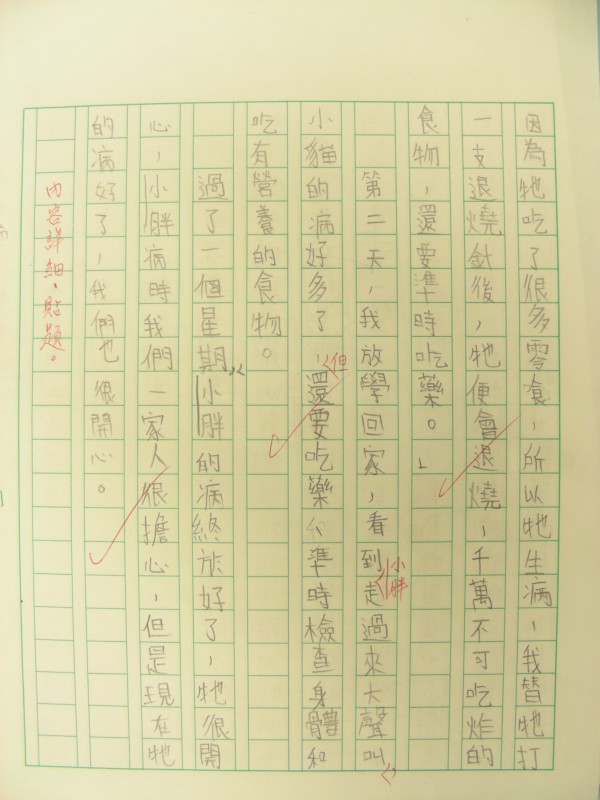 因為牠吃了很多零食，所以牠生病，我替牠打
一支退燒針後，牠便會退燒，千萬不可吃炸的
食物，還要準時吃藥。」
第二天，我放學回家，看到小胖走過來大聲叫，
小貓的病好多了，但還要吃藥、準時檢查身體和
吃有營養的食物。
過了一個星期，小胖的病終於好了，牠很開
心，小胖病時我們一家人很擔心，但是現在牠
的病好了，我們也很開心。
內容詳細，貼題。